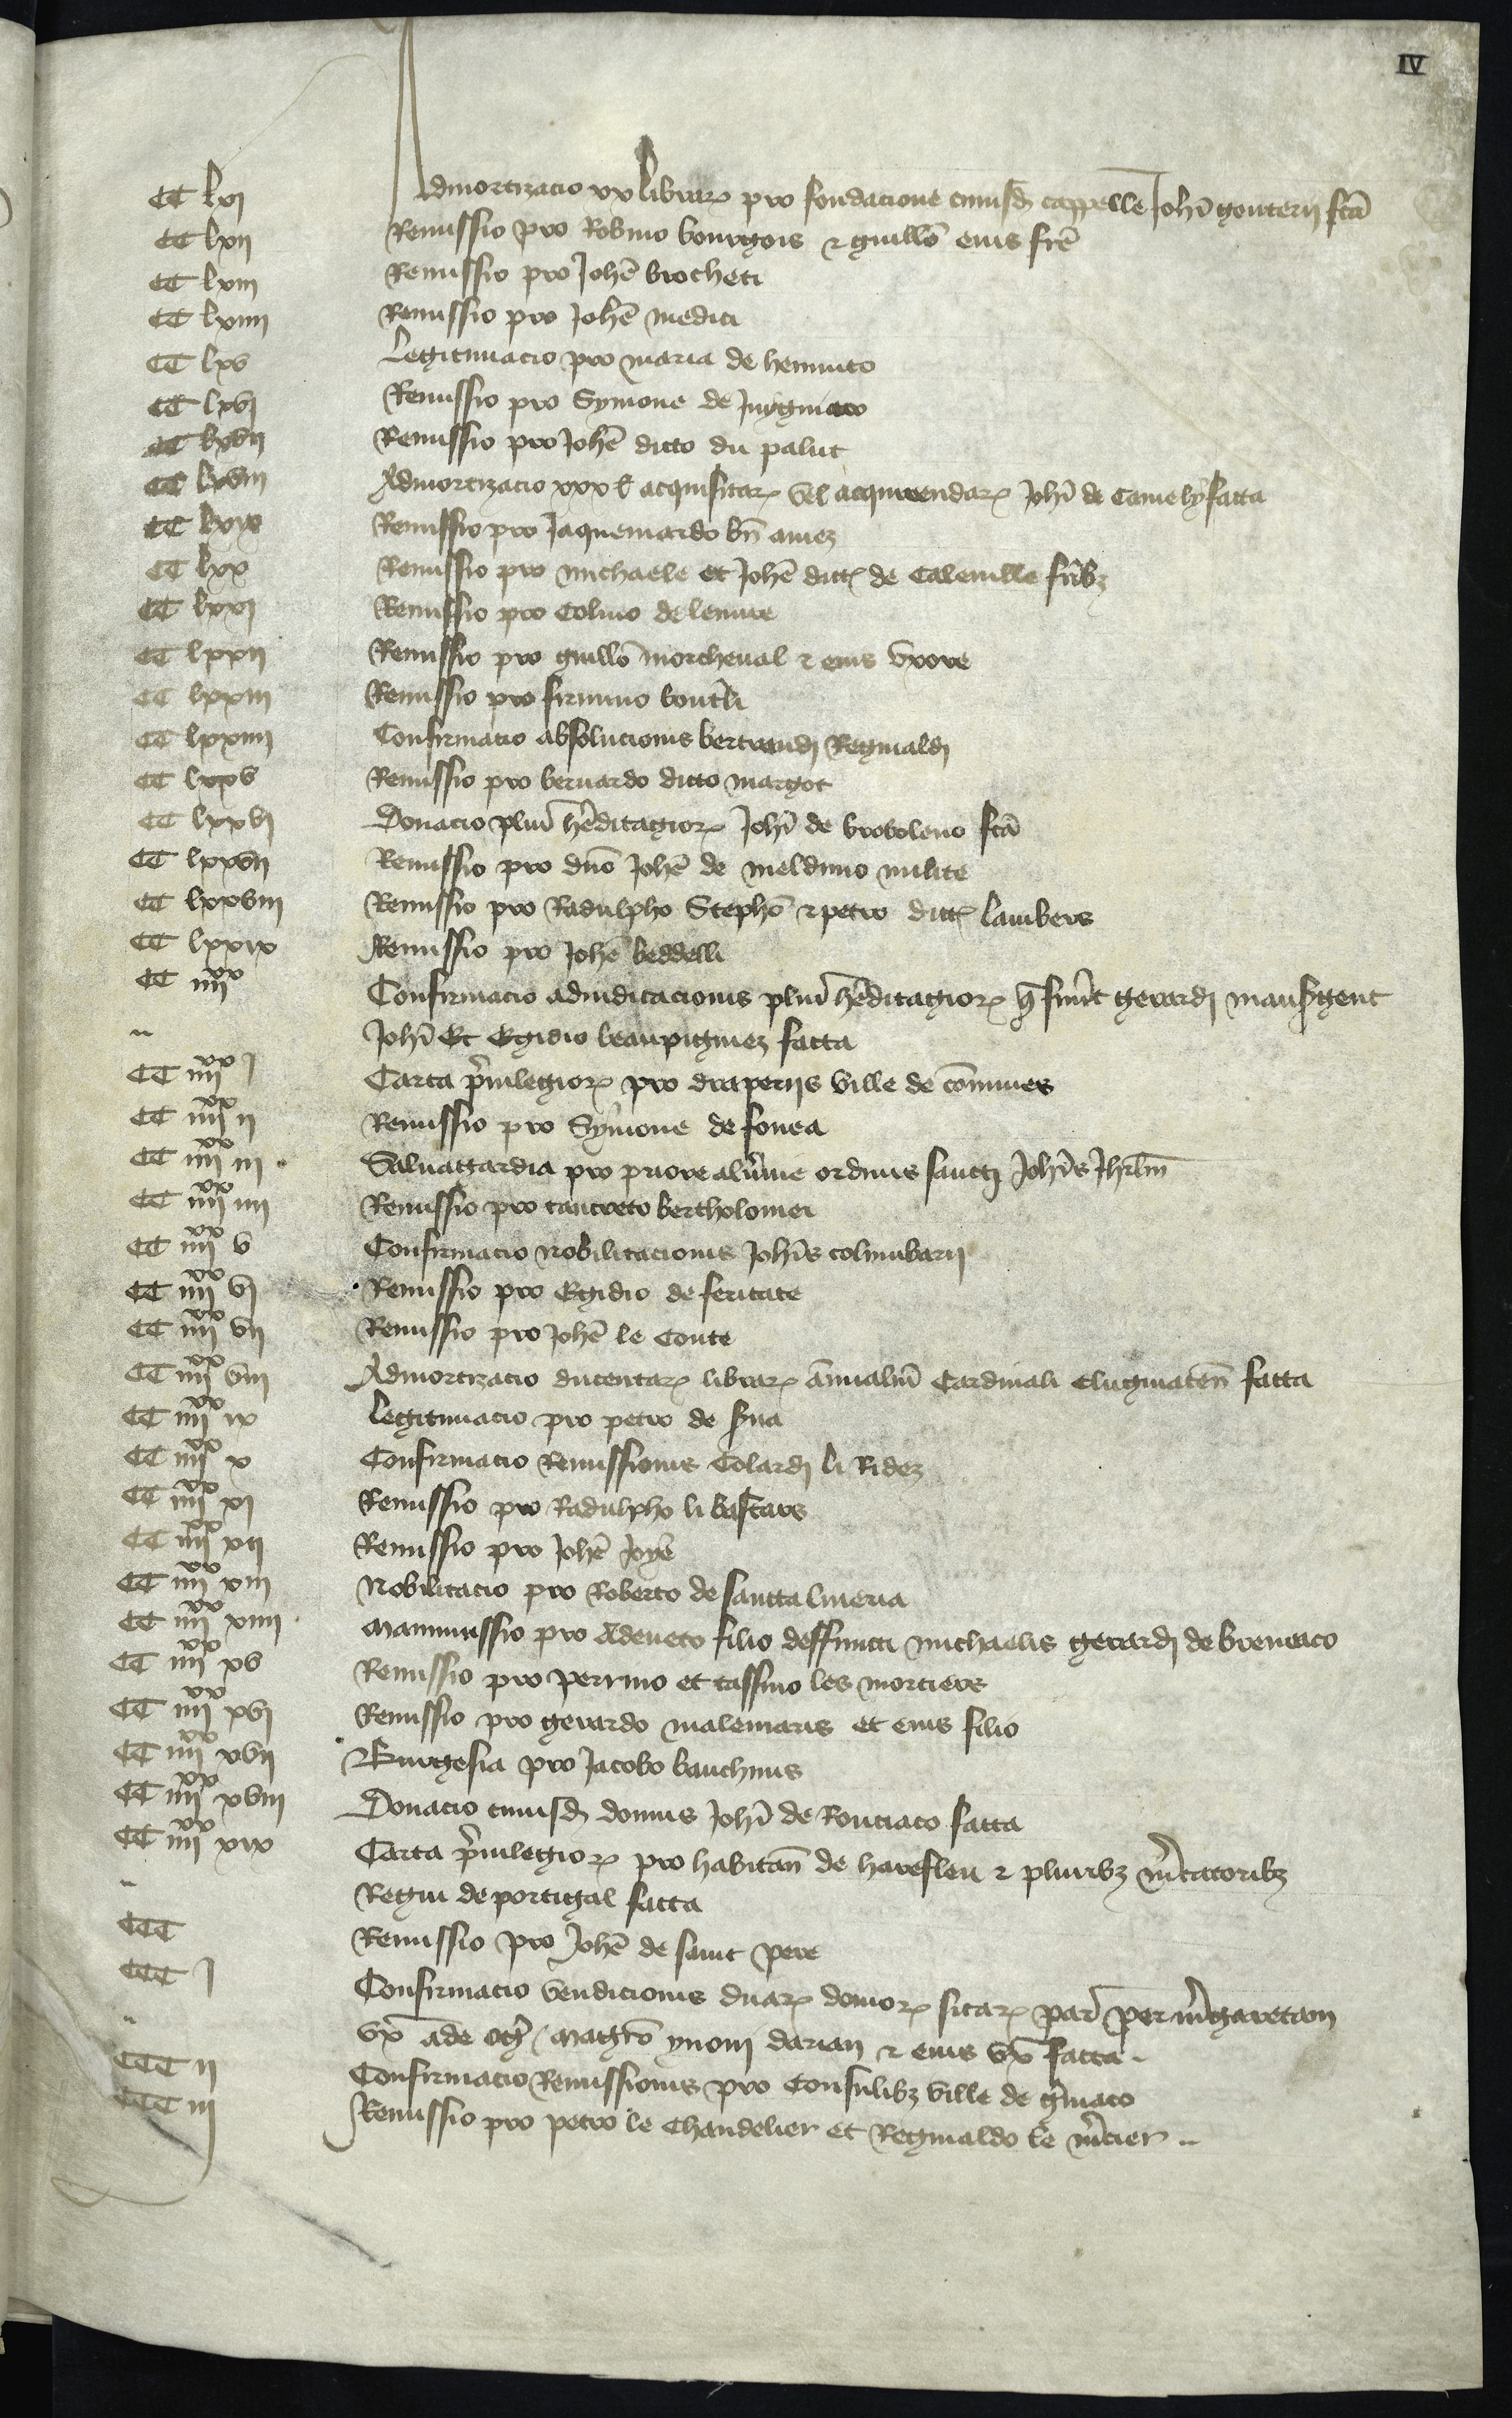 IV
CC lxj Admortizacio xx librar pro fondacione cuiusd cappelle Johi gouterii fca
CC lxij Remissio pro Robino bourgois & guillo eius fre
CC lxiij Remissio pro Johe brocheti
CC lxiiij Remissio pro Johe medici
CC lxv Legitimacio pro maria de hemmto
CC lxvj Remissio pro Symone de
CC lxvij Remissio pro Johe dicto du palut
CC lxviij Admortizacio xxx l acquisitar vel acquirendar Johi de Camely facta
CC lxix Remissio pro Jaquemardo bn amez
CC lxx Remissio pro michaele et Johe dict de Caleville frib
CC lxxj Remissio pro Colino de lenure
CC lxxij Remissio pro guillo morcheval & eius uxore
CC lxxiij Remissio pro firmino
CC lxxiiij Confirmacio absolucionis bertrandj Reginaldj
CC lxxv Remissio pro bernardo dicto margot
CC lxxvj Donacio plur hereditagior Johi de broboleno fca
CC lxxvij Remissio pro dno Johe de melduno milite
CC lxxviij Remissio pro Radulpho Stepho & petro dict lambers
CC lxxix Remissio pro Johe beddelli
CC iiijxx Confirmacio adiudicacionis plur hereditagior q fuert gerardj mausergent
" Johi Et Egidio beaupigniez facta
CC iiijxx j Carta privilegior pro draperiis ville de comines
CC iiijxx ij Remissio pro Symone de fovea
CC iiijxx iij Salvagardia pro priore alvnie ordinis sanctj Johis Jhrlm
CC iiijxx iiij Remissio pro tancreto bertholomei
CC iiijxx v Confirmacio nobilitacionis Johis columbarii
CC iiijxx vj Remissio pro Egidio de feritate
CC iiijxx vij Remissio pro Johe le Conte
CC iiijxx viij Admortizacio ducentar librar annualiu Cardinali Clugniacen facta
CC iiijxx ix Legitimacio pro petro de syna
CC iiijxx x Confirmacio Remissionis Colardj li Ridez
CC iiijxx xj Remissio pro Radulpho li bastars
CC iiijxx xij Remissio pro Johe Joye
CC iiijxx xiij Nobilitacio pro Roberto de sancta lineria
CC iiijxx xiiij Manumissio pro Adeneto filio deffuncti michaelis gerardj de breneaco
CC iiijxx xv Remissio pro perrino et tassino les mortiers
CC iiijxx xvj Remissio pro gerardo malemaris et eius filio
CC iiijxx xvij Burgesia pro Jacobo bauchinis
CC iiijxx xviij Donacio cuiusd domus Johi de Ronciaco facta
CC iiijxx xix Carta privilegior pro habitan de harefleu & pluribz mercatoribz
" Regni de portigal facta
CCC Remissio pro Johe de saint pere
CCC j Confirmacio vendicionis duar domor sitar par per mgaretam
" ux ade ogj magro yvoni darian & eius ux facta
CCC ij Confirmacio Remissionis pro Consulibz ville de
CCC iij Remissio pro petro le Chandelier et Reginaldo le mercier